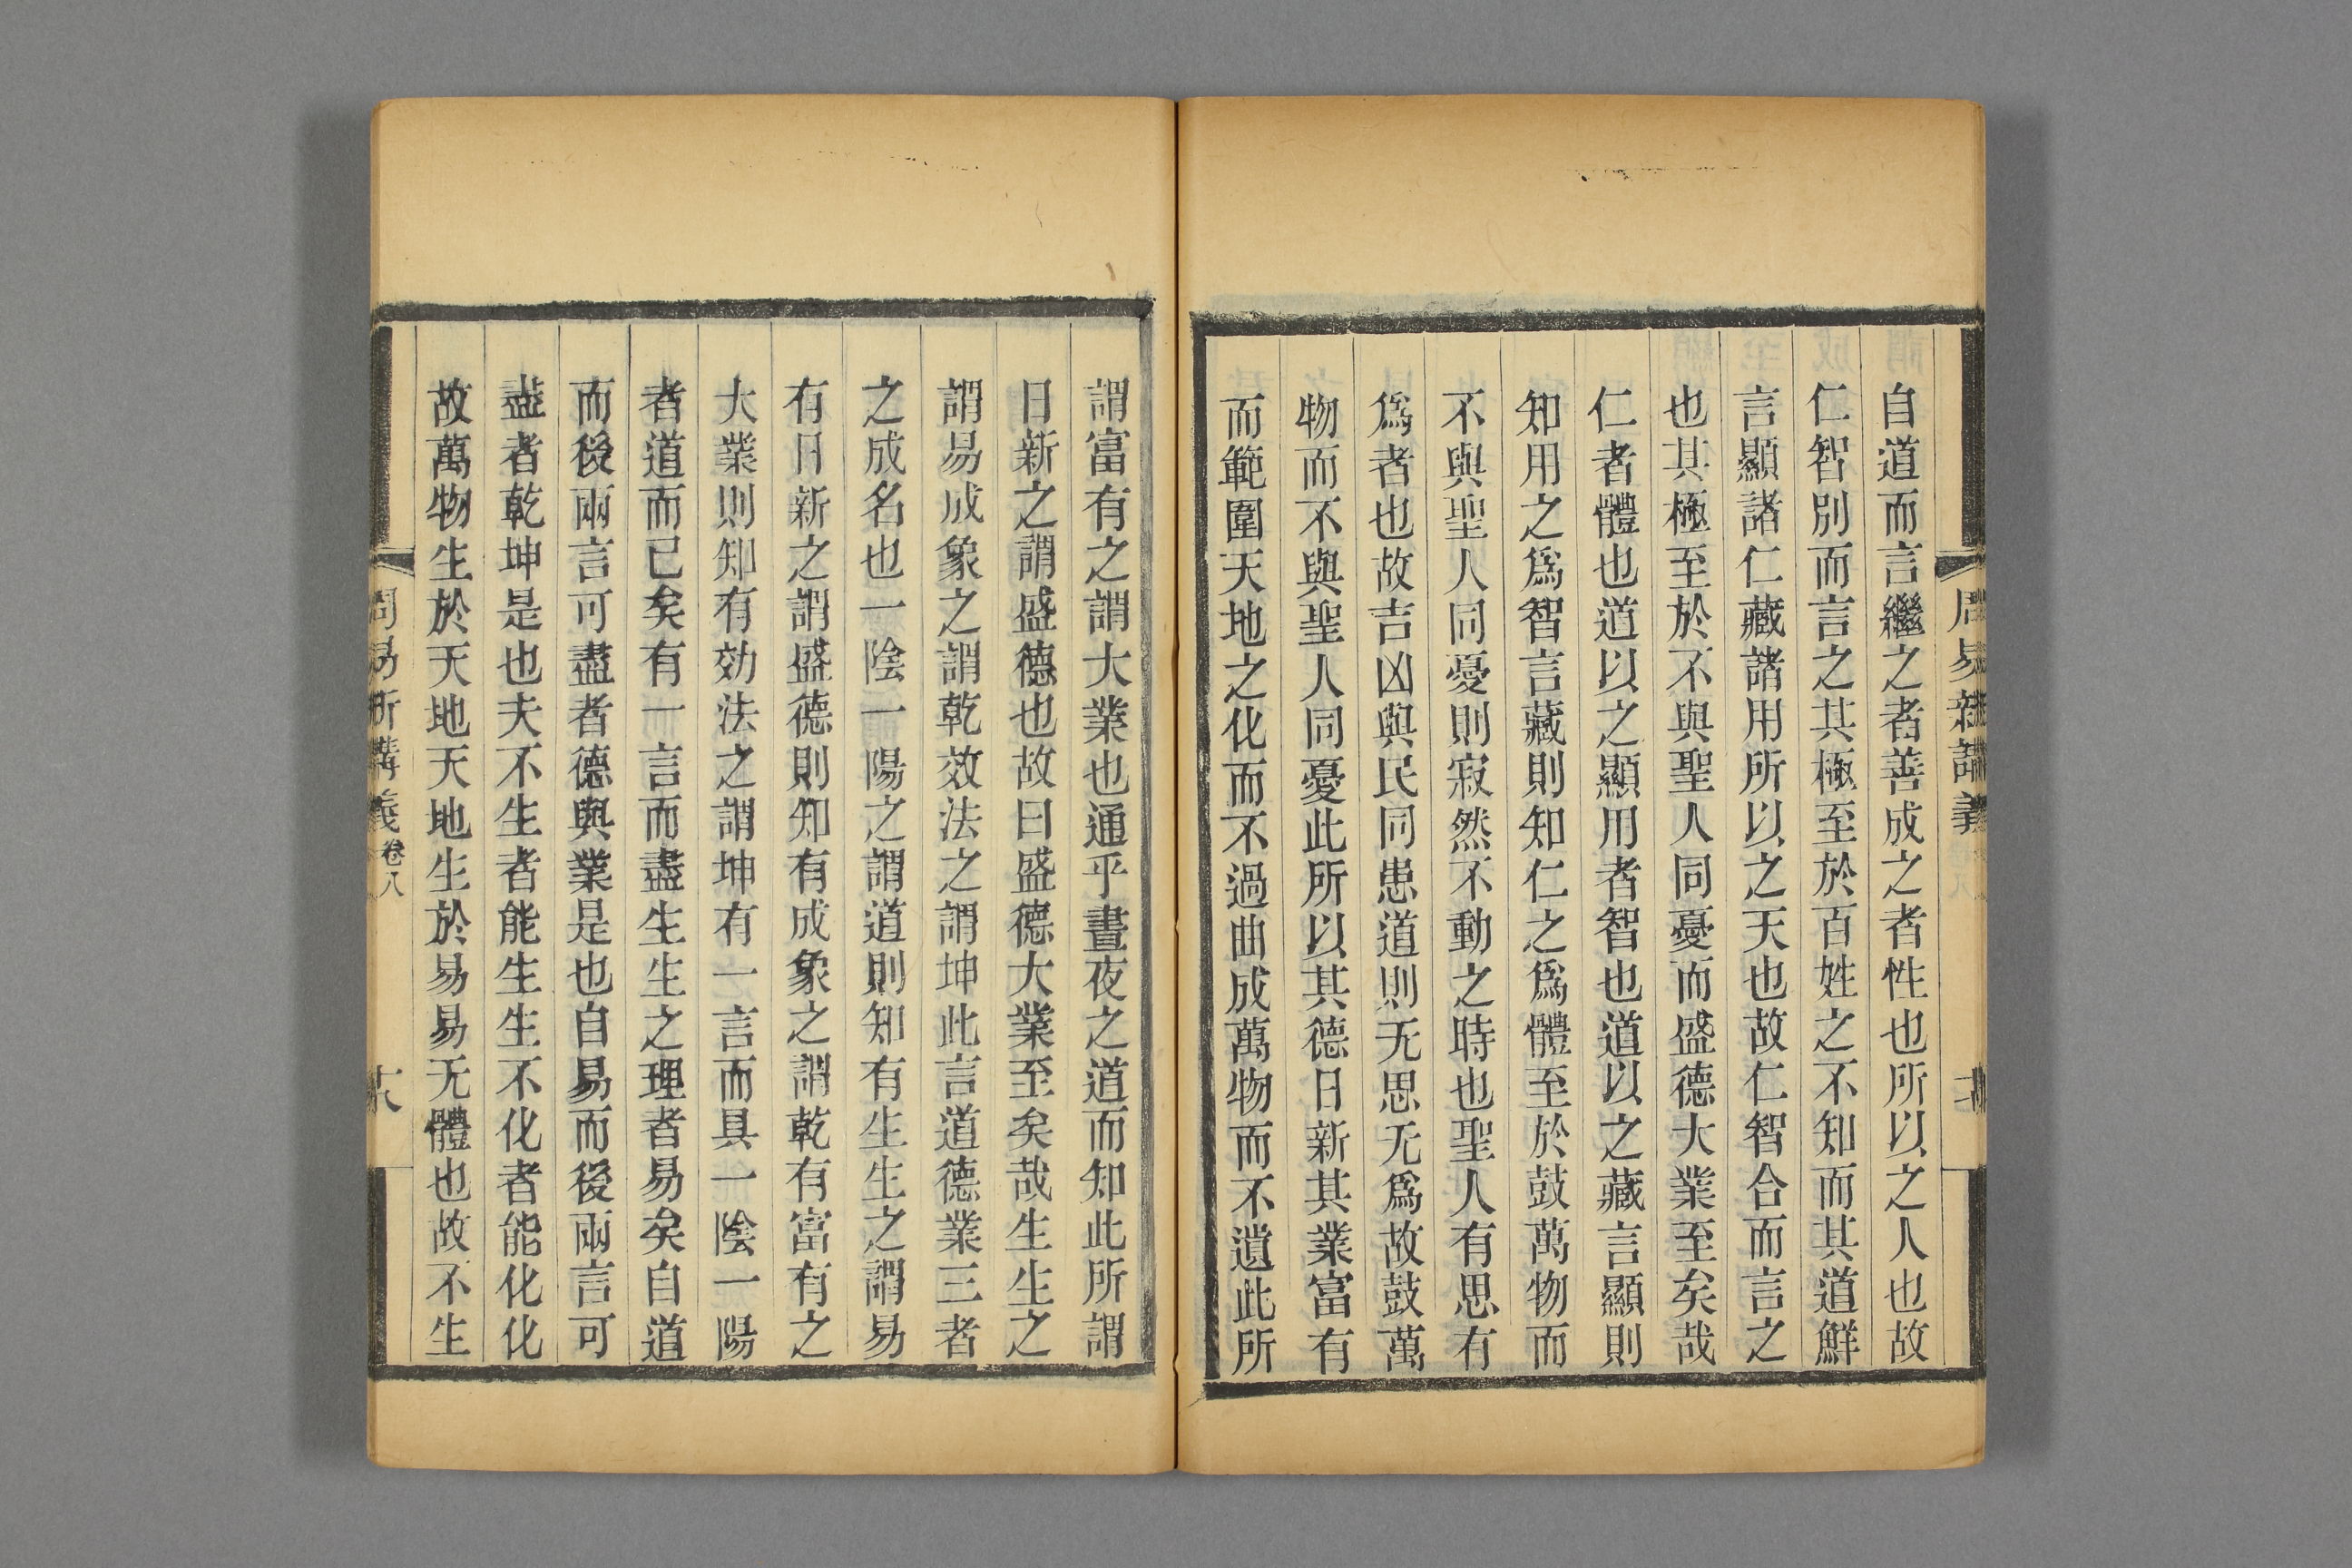 周易新講義
自道而言繼之者善成之者性也所以之人也故
仁智別而言之其極至於百姓之不知而其道鮮
言顯諸仁藏諸用所以之天也故仁智合而言之
也其極至於不與聖人同憂而盛德大業至矣哉
仁者體也道以之顯用者智也道以之藏言顯則
知用之爲智言藏則知仁之爲體至於鼓萬物而
不與聖人同憂則寂然不動之時也聖人有思有
爲者也故吉凶與民同患道則无思无爲故鼓萬
物而不與聖人同憂此所以其德日新其業富有
而範圍天地之化而不過曲成萬物而不遺此所
謂富有之謂大業也通乎晝夜之道而知此所謂
日新之謂盛德也故曰盛德大業至矣哉生生之
謂易成象之謂乾效法之謂坤此言道德業三者
之成名也一陰一陽之謂道則知有生生之謂易
有日新之謂盛德則知有成象之謂乾有富有之
大業則知有効法之謂坤有一言而具一陰一陽
者道而已矣有一言而盡生生之理者易矣自道
而後兩言可盡者德與業是也自易而後兩言可
盡者乾坤是也夫不生者能生生不化者能化化
故萬物生於天地天地生於易易无體也故不生
周易新講義 卷八 十八